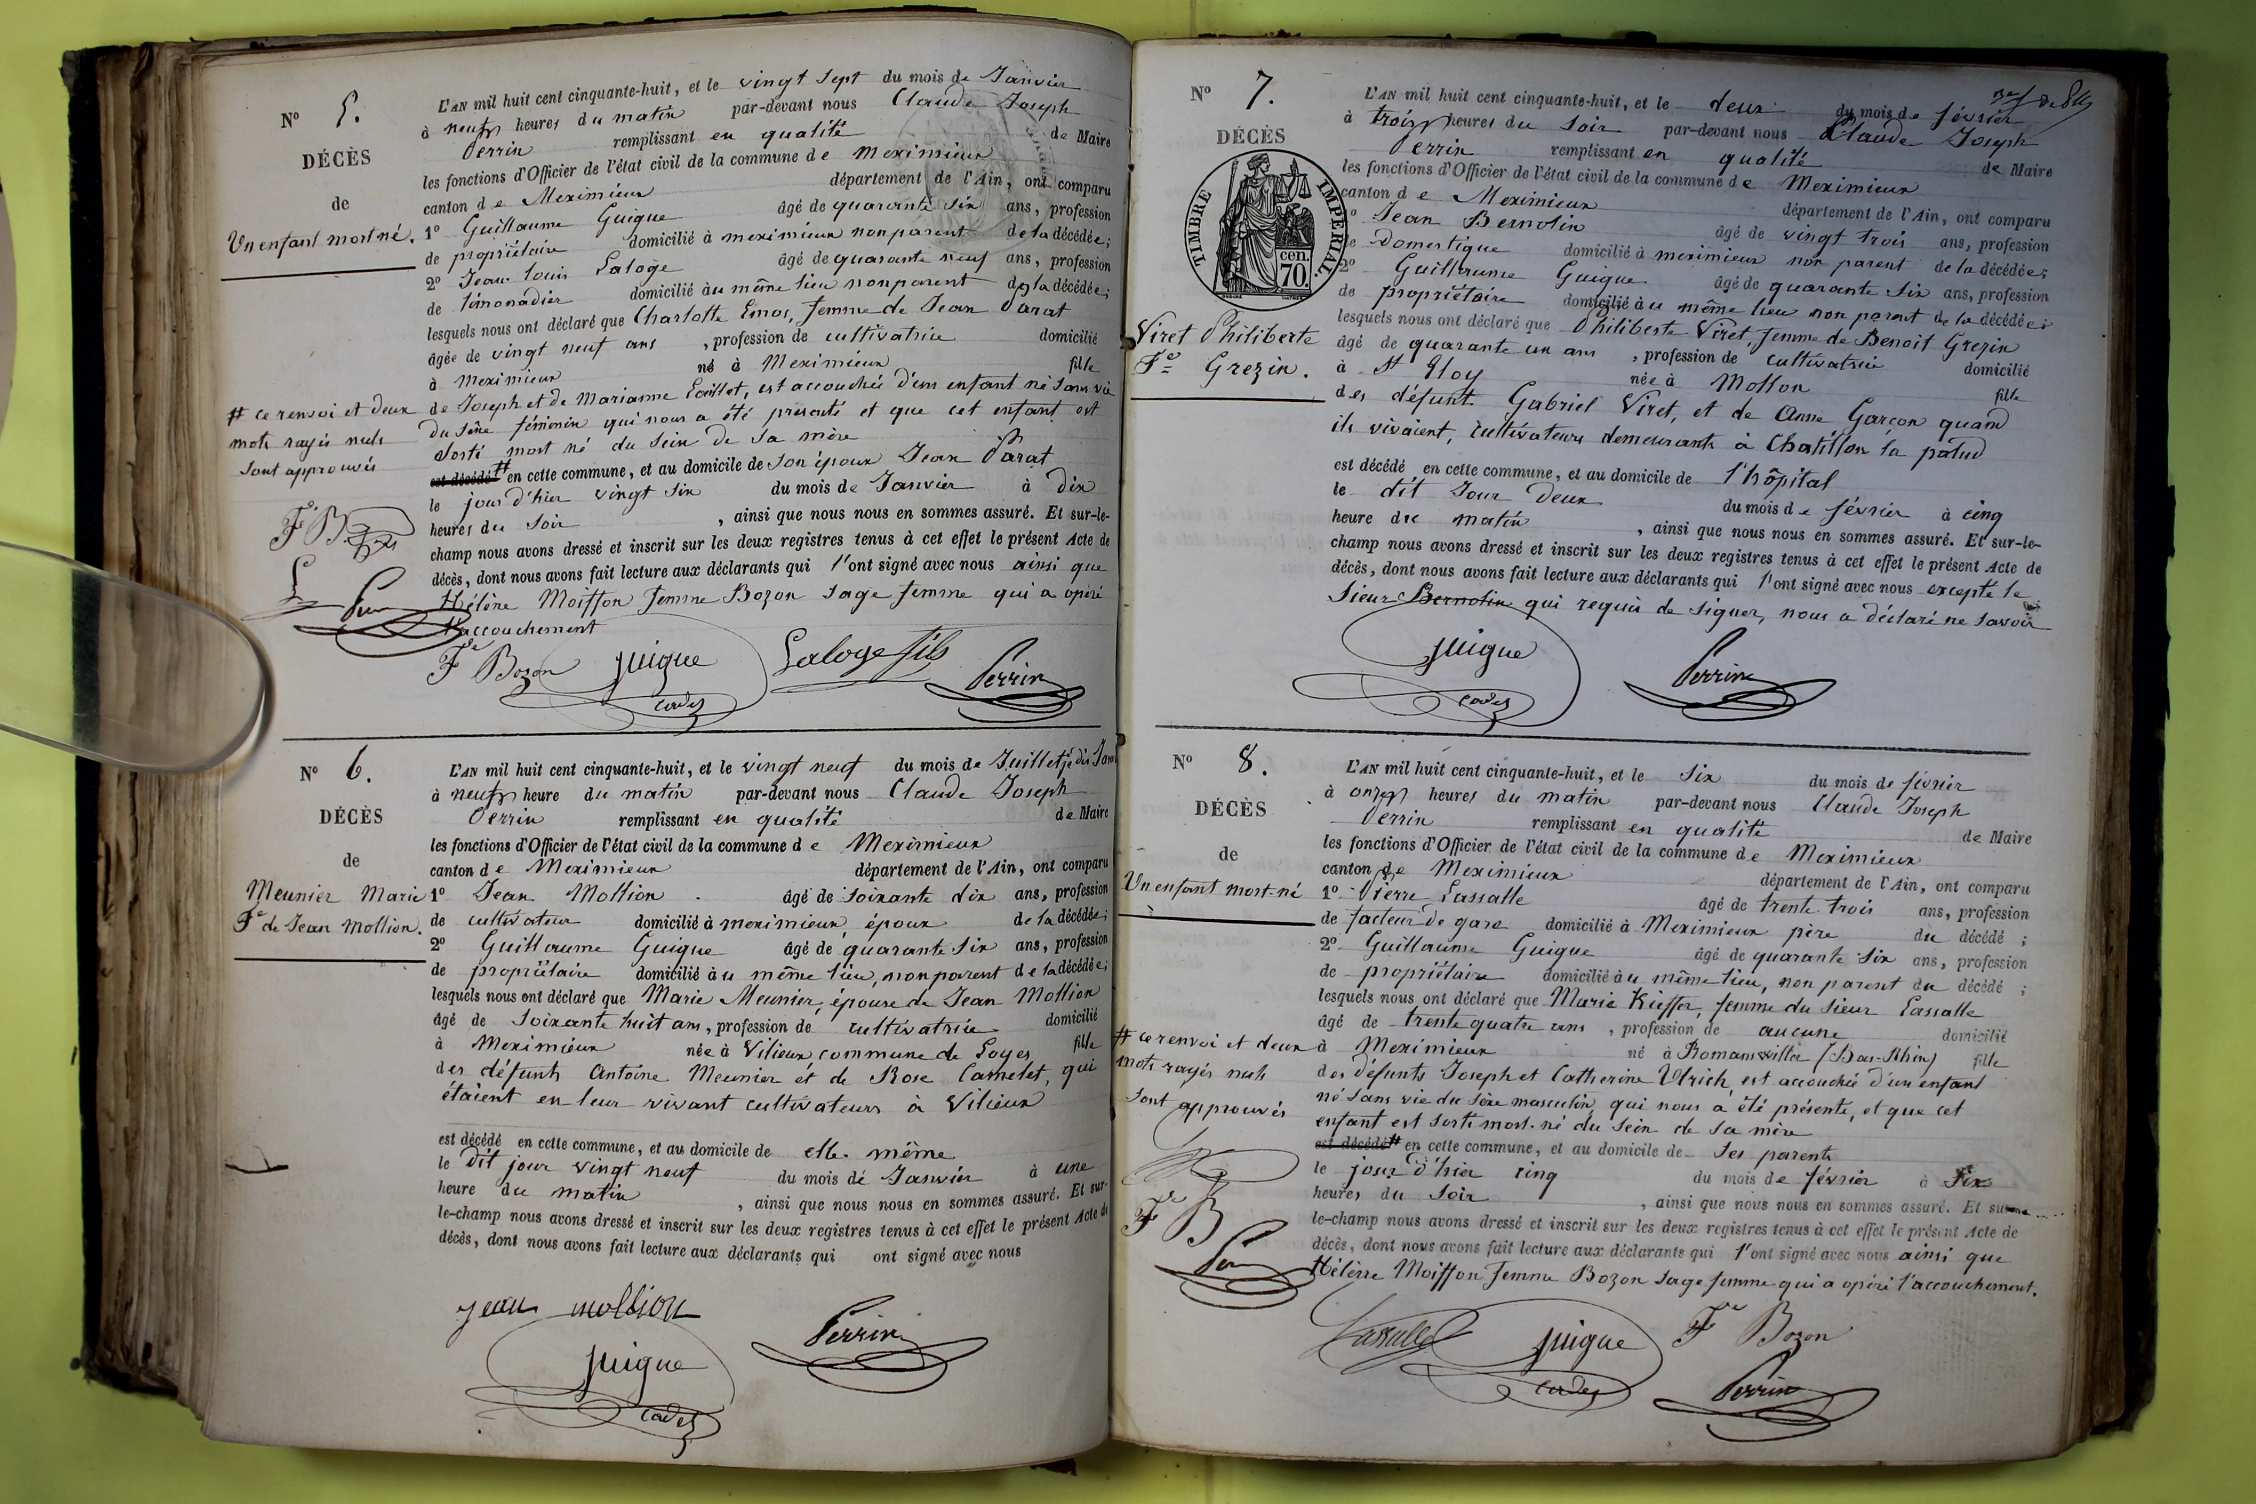 N° 5.
DÉCÈS
de
Un enfant mort né.
L'AN mil huit cent cinquante-huit, et le vingt sept du mois de Janvier
à neuf heures du matin par-devant nous Claude Joseph
Perrin remplissant en qualité de Maire
les fonctions d'Officier de l'état civil de la commune de Meximieux
canton de Meximieux département de l'Ain, ont comparu
1° Guillaume Guigue âgé de quarante six ans, profession
de propriétaire domicilié à meximieux non parent de la décédée;
2° Jean Louis Laloge âgé de quarante neuf ans, profession
de limonadier domicilié au même lieu non parent de la décédée;
lesquels nous ont déclaré que Charlotte Emos, femme de Jean Parat
âgée de vingt neuf ans, profession de cultivatrice domicilié
à Meximieux né à Meximieux fille
de Joseph et de Marianne, est accouchée d'un enfant né sans vie
du sexe féminin qui nous a été présenté et que cet enfant est
sorti mort né du sein de sa mère
est décédé # en cette commune, et au domicile de son époux Jean Parat
le jour d'hier vingt six du mois de Janvier à dix
heures du soir, ainsi que nous nous en sommes assuré. Et sur-le-
champ nous avons dressé et inscrit sur les deux registres tenus à cet effet le présent Acte de
décès, dont nous avons fait lecture aux déclarants qui l'ont signé avec nous ainsi que
Hélène Moiffon femme Bozon sage femme qui a opéré
l'accouchement
# ce renvoi et deux
mots rayés nuls
sont approuvés
Fe Bozon Guigue Laloge fils Perrin
cadet
N° 6.
DÉCÈS
de
Meunier Marie
Fe de Jean Mollion.
L'AN mil huit cent cinquante-huit, et le vingt neuf du mois de Juillet je dis Janv
à neuf heure du matin par-devant nous Claude Joseph
Perrin remplissant en qualité de Maire
les fonctions d'Officier de l'état civil de la commune de Meximieux
canton de Meximieux département de l'Ain, ont comparu
1° Jean Mollion âgé de soixante dix ans, profession
de cultivateur domicilié à meximieux, époux de la décédée;
2° Guillaume Guigue âgé de quarante six ans, profession
de propriétaire domicilié au même lieu, non parent de la décédée;
lesquels nous ont déclaré que Marie Meunier, épouse de Jean Mollion
âgé de soixante huit ans, profession de cultivatrice domicilié
à Meximieux née à Vilieux commune de Loyes fille
des défunts Antoine Meunier et de Rose Camelet, qui
étaient en leur vivant cultivateurs à Vilieux
est décédé en cette commune, et au domicile de elle-même
le dit jour vingt neuf du mois de Janvier à une
heure du matin, ainsi que nous nous en sommes assuré. Et sur-
le-champ nous avons dressé et inscrit sur les deux registres tenus à cet effet le présent Acte de
décès, dont nous avons fait lecture aux déclarants qui ont signé avec nous
jean mollion
Guigue Perrin
cadet
N° 7.
DÉCÈS
TIMBRE IMPÉRIAL
70. cen.
Viret Philiberte
Fe Grezin.
L'AN mil huit cent cinquante-huit, et le deux du mois de février
à trois heures du soir par-devant nous Claude Joseph
Perrin remplissant en qualité de Maire
les fonctions d'Officier de l'état civil de la commune de Meximieux
canton de Meximieux département de l'Ain, ont comparu
Jean Bernolin âgé de vingt trois ans, profession
de Domestique domicilié à meximieux non parent de la décédée;
2° Guillaume Guigue âgé de quarante six ans, profession
de propriétaire domicilié au même lieu non parent de la décédée;
lesquels nous ont déclaré que Philiberte Viret, femme de Benoit Grezin
âgé de quarante un ans, profession de cultivatrice domicilié
à St Eloy née à Mollon fille
des défunt Gabriel Viret, et de Anne Garçon quand
ils vivaient, cultivateurs demeurants à Chatillon la palud
est décédé en cette commune, et au domicile de l'hôpital
le dit jour deux du mois de février à cinq
heure du matin, ainsi que nous nous en sommes assuré. Et sur-le-
champ nous avons dressé et inscrit sur les deux registres tenus à cet effet le présent Acte de
décès, dont nous avons fait lecture aux déclarants qui l'ont signé avec nous excepté le
Sieur Bernolin qui requis de signer, nous a déclaré ne savoir
Guigue Perrin
cadet
N° 8.
DÉCÈS
de
Un enfant mort-né
L'AN mil huit cent cinquante-huit, et le six du mois de février
à onze heures du matin par-devant nous Claude Joseph
Perrin remplissant en qualité de Maire
les fonctions d'Officier de l'état civil de la commune de Meximieux
canton de Meximieux département de l'Ain, ont comparu
1° Pierre Lassalle âgé de trente trois ans, profession
de facteur de gare domicilié à Meximieux père du décédé;
2° Guillaume Guigue âgé de quarante six ans, profession
de propriétaire domicilié au même lieu, non parent du décédé;
lesquels nous ont déclaré que Marie Kieffer, femme du sieur Lassalle
âgé de trente quatre ans, profession de aucune domicilié
à Meximieux né à Romanswiller (Bas-Rhin) fille
des défunts Joseph et Catherine Ulrich, est accouchée d'un enfant
né sans vie du sexe masculin, qui nous a été présenté, et que cet
enfant est sorti mort-né du sein de sa mère
est décédé # en cette commune, et au domicile de ses parents
le jour d'hier cinq du mois de février à six
heures du soir, ainsi que nous nous en sommes assuré. Et sur
le-champ nous avons dressé et inscrit sur les deux registres tenus à cet effet le présent Acte de
décès, dont nous avons fait lecture aux déclarants qui l'ont signé avec nous ainsi que
Hélène Moiffon femme Bozon sage femme qui a opéré l'accouchement.
# ce renvoi et deux
mots rayés nuls
sont approuvés
Fe B
Lassalle Guigue Fe Bozon
cadet Perrin